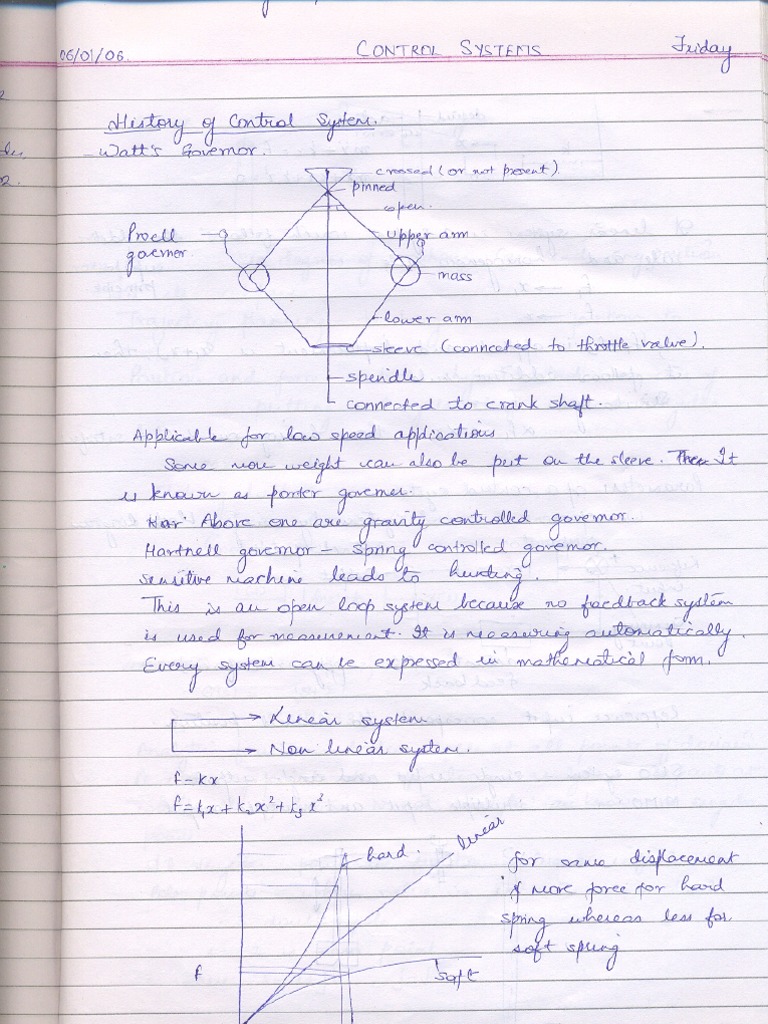 06/01/06. CONTROL SYSTEMS Friday
History of Control System.
- Watt's Governor.
crossed (or not present).
pinned
open.
Proell
governer.
upper arm
mass
lower arm
sleeve (connected to throttle valve).
spindle
connected to crank shaft.
Applicable for low speed applications
Some more weight can also be put on the sleeve. Then It
is known as porter governer.
Above one are gravity controlled governor.
Hartnell governor - spring controlled governor.
Sensitive machine leads to hunting.
This is an open loop system because no feedback system
is used for measurement. It is measuring automatically.
Every system can be expressed in mathematical form.
Linear system
Non linear system.
f = kx
f = k₁x + k₂x² + k₃x²
hard.
linear
for same displacement
if more force for hard
spring whereas less for
soft spring
f
soft